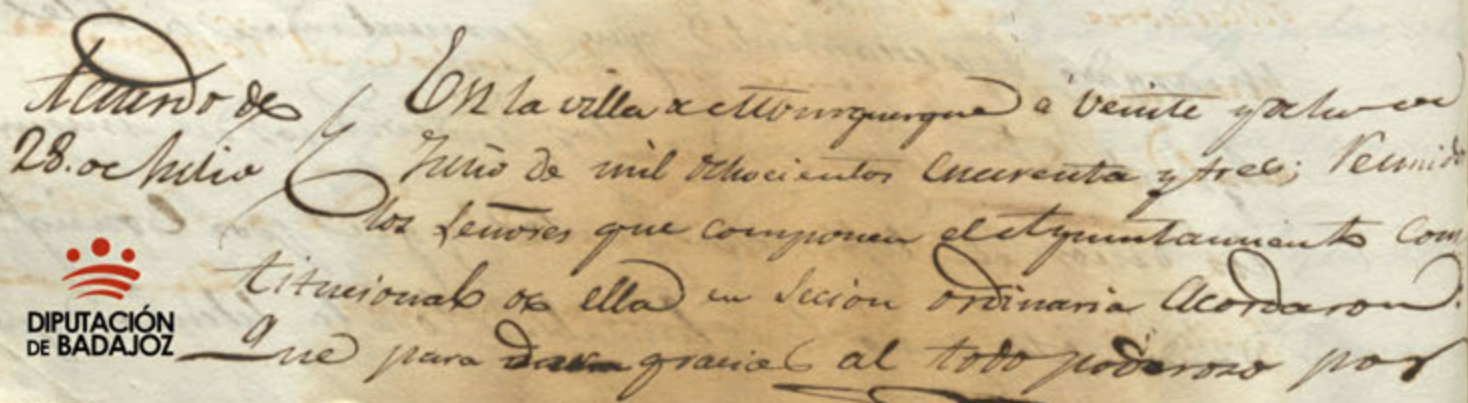 Acuerdo de
28. de Julio
En la villa de Alburquerque a veinte y ocho de
Junio de mil ochocientos cuarenta y tres; Reunido
los Señores que componen el Ayuntamiento Cons
titucional de ella en secion ordinaria Acordaron:
Que para dar gracias al todo poderoso por
DIPUTACIÓN
DE BADAJOZ